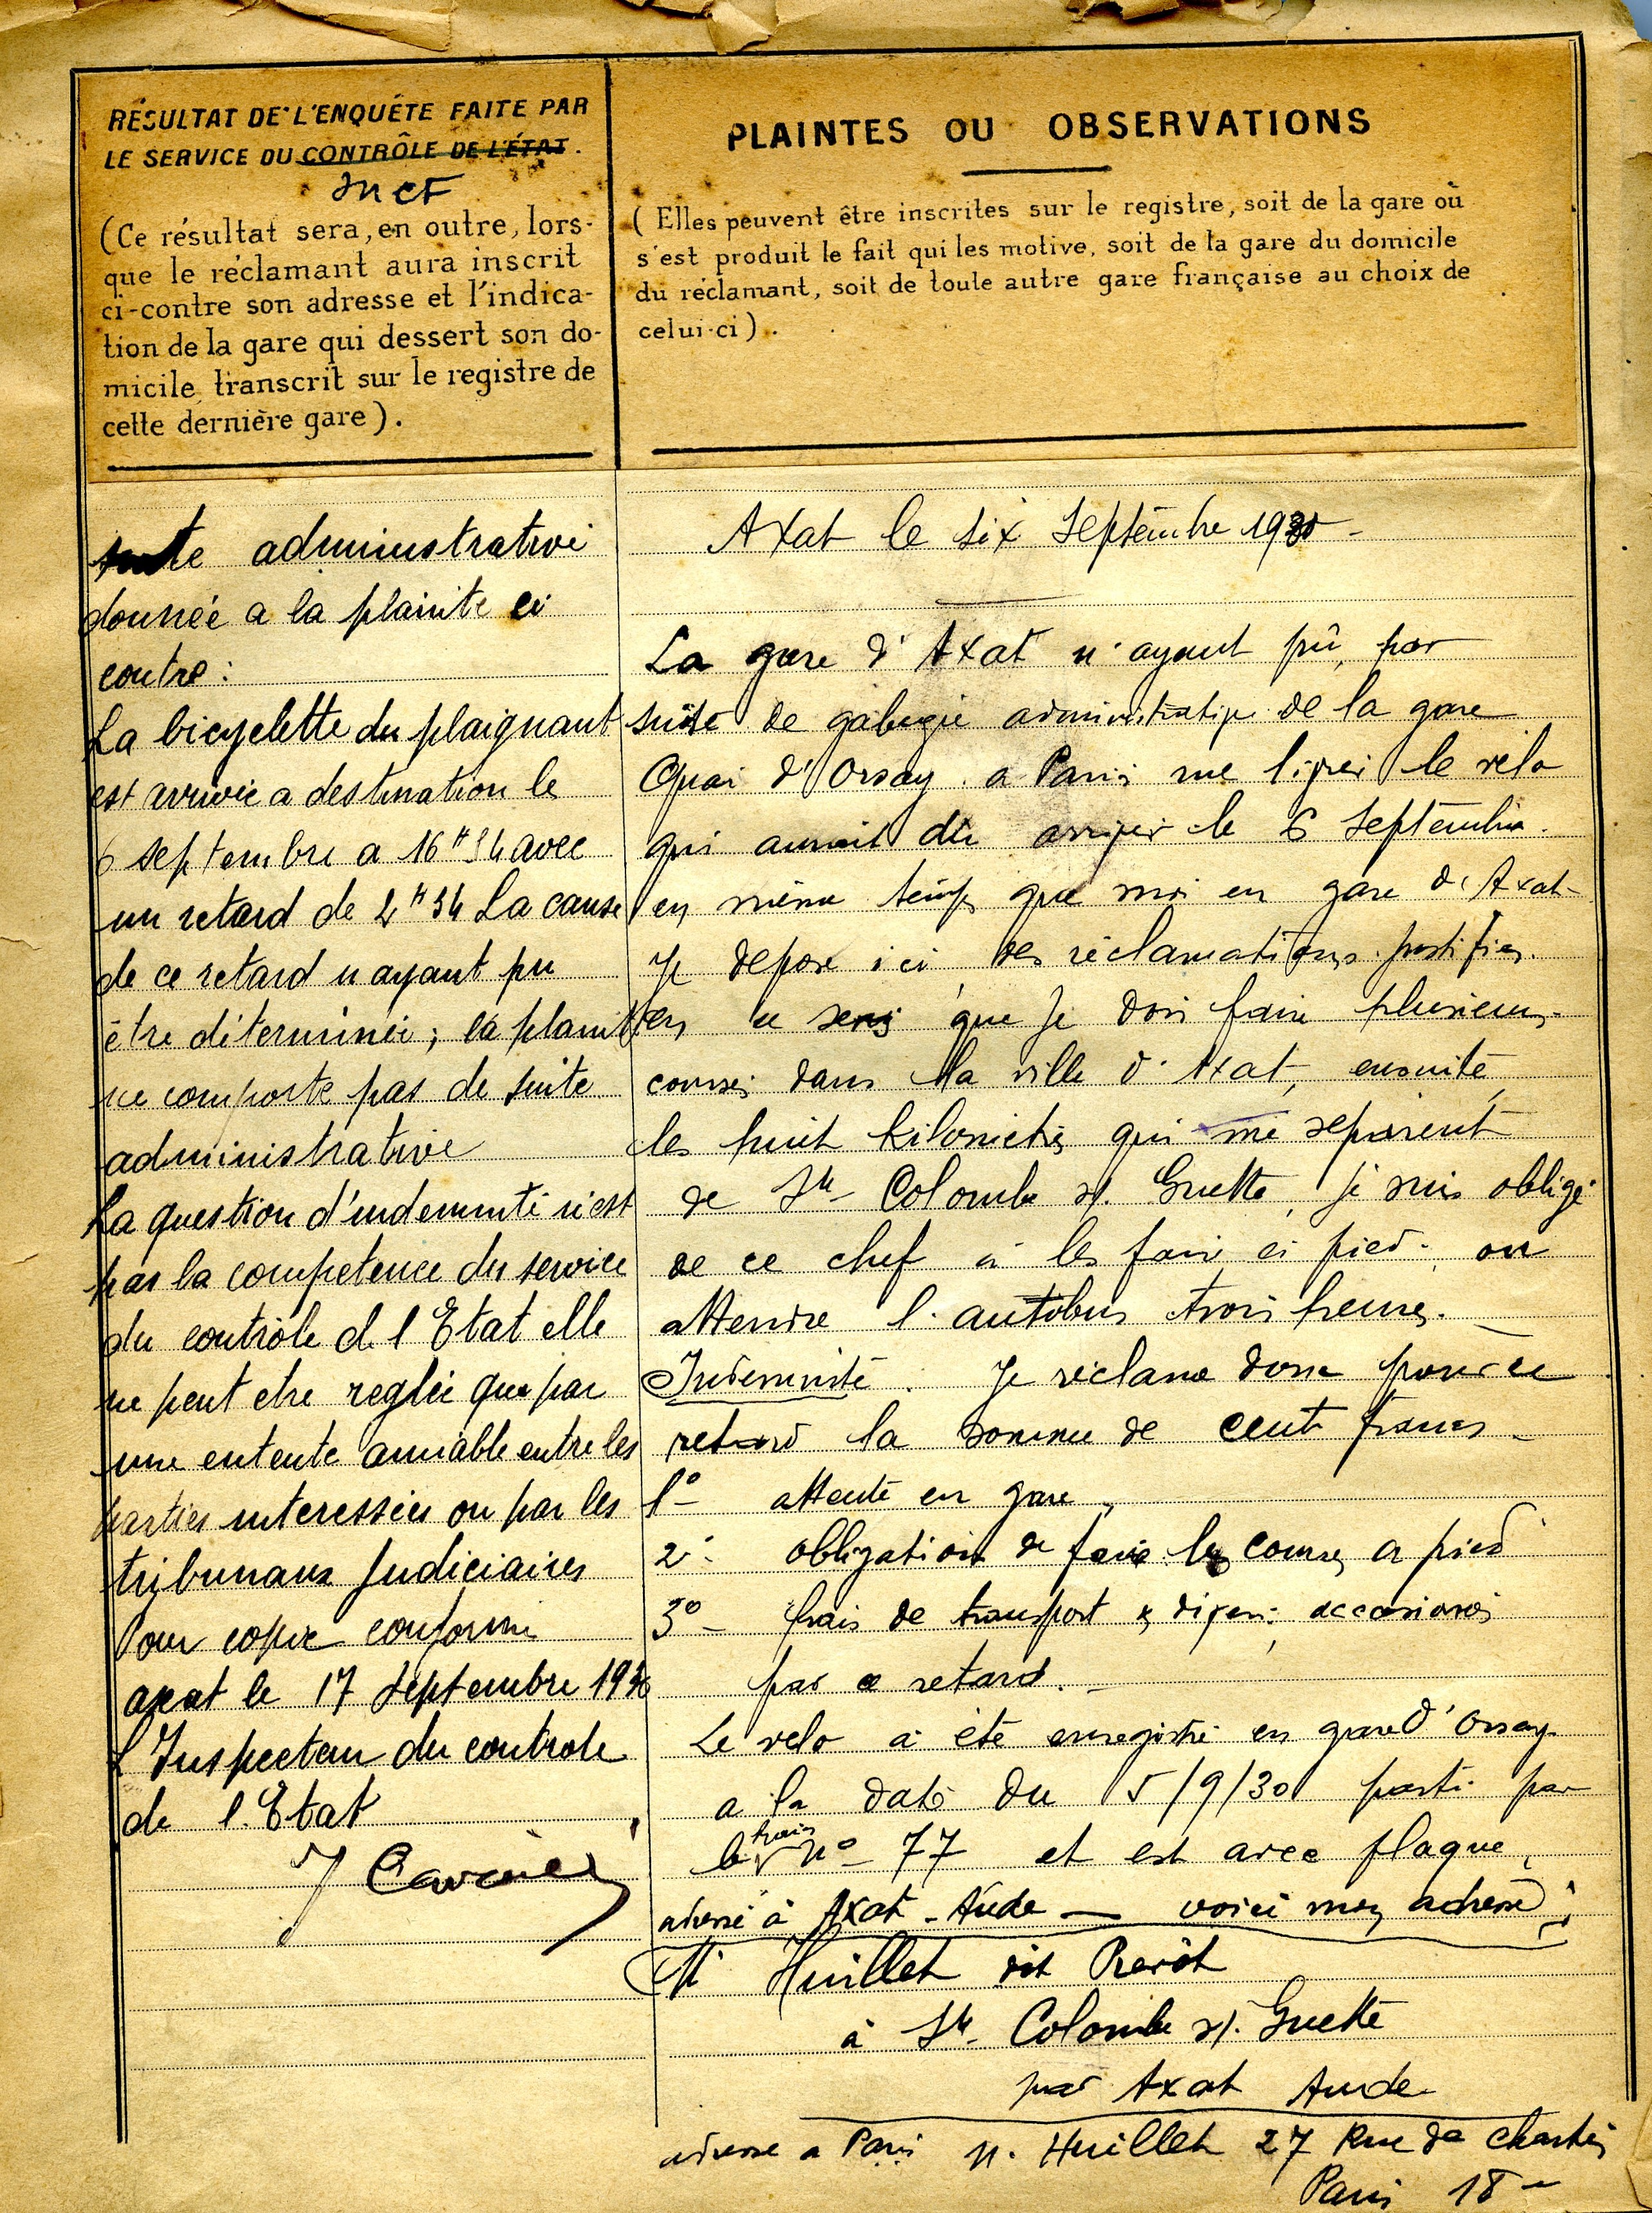 RÉSULTAT DE L'ENQUÊTE FAITE PAR
LE SERVICE DU CONTRÔLE DE L'ÉTAT.
SNCF
(Ce résultat sera, en outre, lors-
que le réclamant aura inscrit
ci-contre son adresse et l'indica-
tion de la gare qui dessert son do-
micile, transcrit sur le registre de
cette dernière gare).
suite administrative
donnée a la plainte ci
contre :
La bicyclette du plaignant
est arrivée a destination le
6 septembre a 16 H 34 avec
un retard de 2 H 34 La cause
de ce retard n ayant pu
être déterminée ; la plainte
ne comporte pas de suite
administrative
La question d'indemnité n'est
pas la competence du service
du contrôle de l'Etat elle
ne peut etre reglée que par
une entente amiable entre les
parties interessées ou par les
tribunaux Judiciaires
Pour copie conforme
axat le 17 Septembre 1930
L'Inspecteur du controle
de l'Etat
PLAINTES OU OBSERVATIONS
(Elles peuvent être inscrites sur le registre, soit de la gare où
s'est produit le fait qui les motive, soit de la gare du domicile
du réclamant, soit de toute autre gare française au choix de
celui-ci).
Axat le six Septembre 1930 -
La gare d'Axat n'ayant pû, par
suite de gabegie administratif de la gare
Quai d'Orsay a Paris me livrer le velo
qui aurait dû arriver le 6 Septembre.
en même temps que moi en gare d'Axat-
Je depose ici des réclamations justifiées.
en ce sens que Je dois faire plusieurs
courses dans la ville d'Axat, ensuite,
les huit kilometres qui me separent
de Ste Colombe s/. Guette, je suis obligé
de ce chef à les faire à pied. ou
attendre l'autobus trois heures.
Indemnité. Je réclame donc pour ce
retard la somme de cent francs -
1° - attente en gare,
2° - obligation de faire les courses a pied
3° - frais de transport & divers occasionés
par ce retard. -
Le velo a été enregistré en gare d'Orsay
a la date du 5/9/30 parti par
le train n° 77 et est avec plaque,
adressé à Axat - Aude — voici mon adresse :
Mr Huillet dit Prevôt
à Ste Colombe s/. Guette
par Axat Aude
adresse a Paris M. Huillet 27 Rue de Chartres
Paris 18e